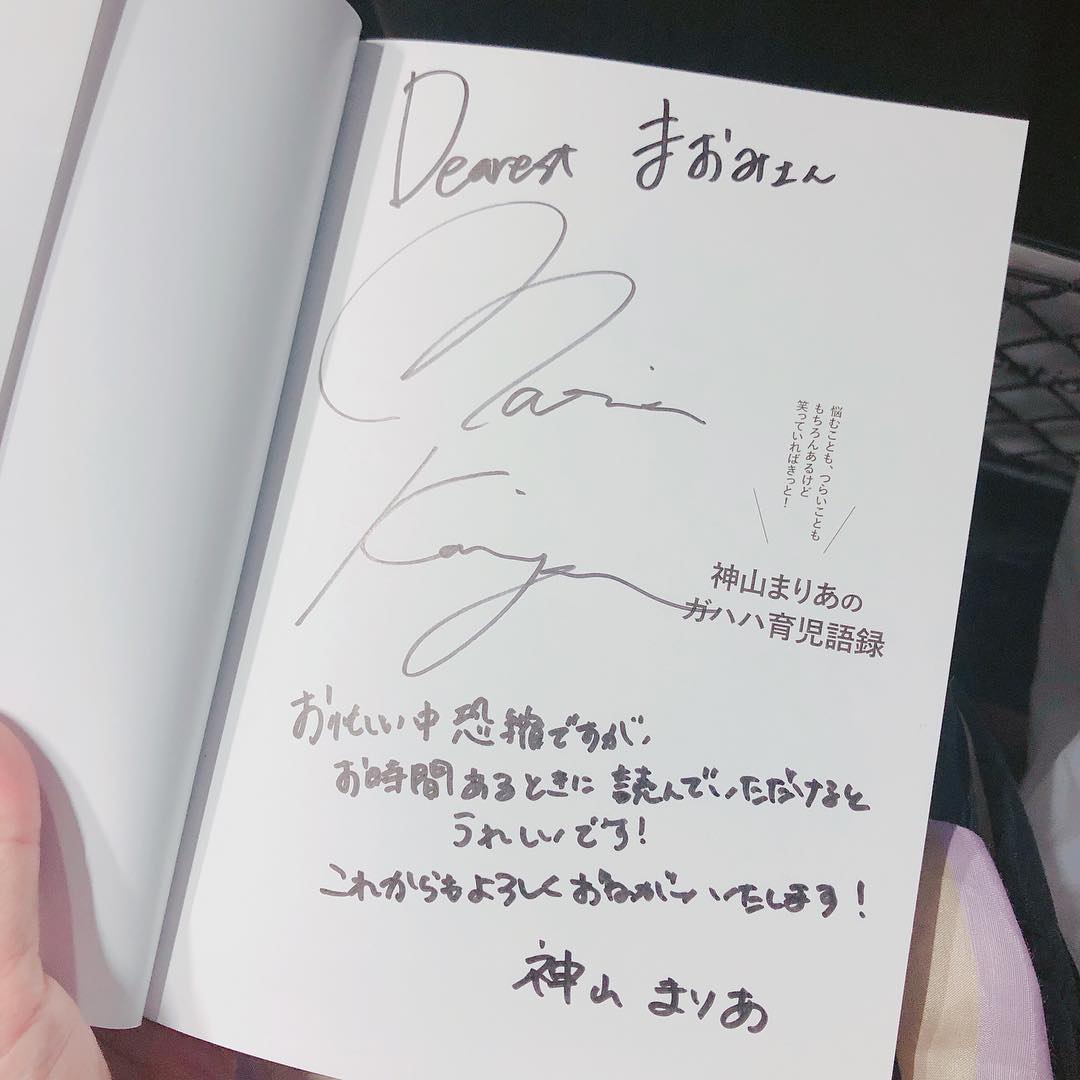 Dearest まおみさん
Maria
Kamiyama
悩むことも、つらいことも
もちろんあるけど
笑っていればきっと！
神山まりあの
ガハハ育児語録
お忙しい中恐縮ですが、
お時間あるときに読んでいただけると
うれしいです！
これからもよろしくおねがいいたします！
神山まりあ